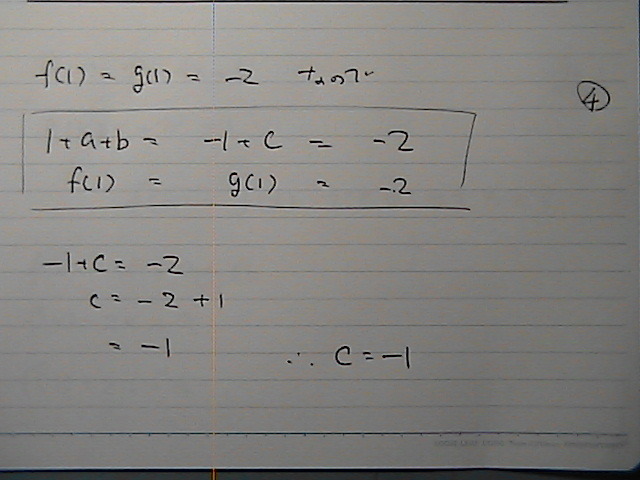 f(1) = g(1) = -2 なので
④
1+a+b = -1+c = -2
f(1) = g(1) = -2
-1+c = -2
c = -2+1
= -1
∴ c = -1